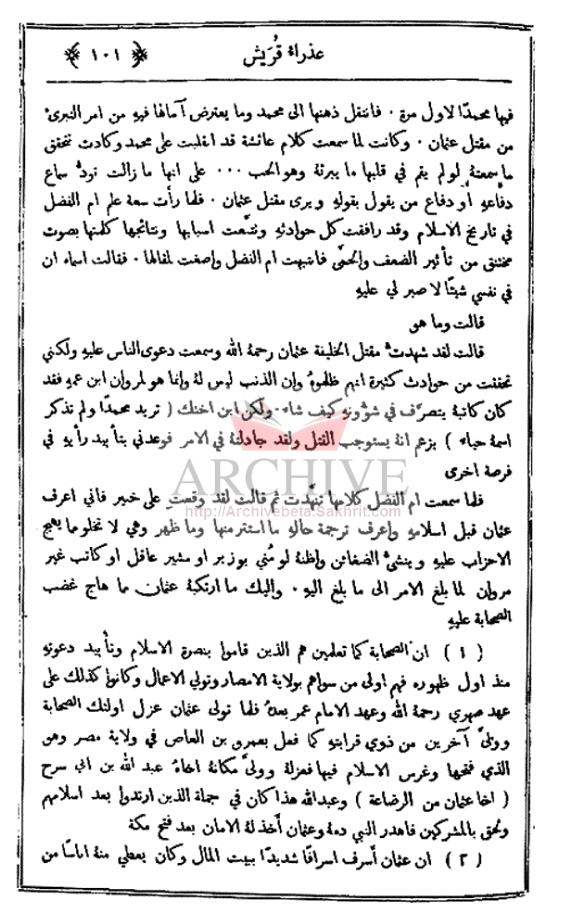 عذراء قُرَيش
﴿ ١٠١ ﴾
فيها محمدًا لاول مرة ٠ فانتقل ذهنها الى محمد وما يعترض آمالها فيه من امر التبرىء
من مقتل عثمان ٠ وكانت لما سمعت كلام عائشة قد انقلبت على محمد وكادت تتحقق
ما سمعتهُ لو لم يقم في قلبها ما يبرئهُ وهو الحب ٠٠٠ على انها ما زالت تودُّ سماع
دفاعهِ أو دفاع من يقول بقولهِ ويرى مقتل عثمان ٠ فلما رأت سعة علم ام الفضل
في تاريخ الاسلام وقد رافقت كل حوادثهِ وتتبَّعت اسبابها ونتائجها كلمتها بصوت
مختنق من تأثير الضعف والحمَّى فانتبهت ام الفضل واصغت لمقالها ٠ فقالت اسماء ان
في نفسي شيئًا لا صبر لي عليهِ
قالت وما هو
قالت لقد شهدتُ مقتل الخليفة عثمان رحمهُ الله وسمعت دعوى الناس عليهِ ولكني
تحققت من حوادث كثيرة انهم ظلموهُ وان الذنب ليس لهُ وانما هو لمروان ابن عمهِ فقد
كان كاتبهُ يتصرَّف في شؤونهِ كيف شاء ٠ ولكن ابن اختك ( تريد محمدًا ولم تذكر
اسمهُ حياء ) يزعم انهُ يستوجب القتل ولقد جادلتهُ في الامر فوعدني بتأييد رأيهِ في
فرصة اخرى
فلما سمعت ام الفضل كلامها تنهَّدت ثم قالت لقد وقعتِ على خبير فاني اعرف
عثمان قبل اسلامهِ واعرف ترجمة حالهِ ما استتر منها وما ظهر وهي لا تخلو مما يهيج
الاحزاب عليهِ وينشئُ الضغائن واظنهُ لو مُني بوزير او مشير عاقل او كاتب غير
مروان لما بلغ الامر الى ما بلغ اليهِ ٠ واليك ما ارتكبهُ عثمان مما هاج غضب
الصحابة عليهِ
( ١ ) ان الصحابة كما تعلمين هم الذين قاموا بنصرة الاسلام وتأييد دعوتهِ
منذ اول ظهوره فهم اولى من سواهم بولاية الامصار وتولي الاعمال وكانوا كذلك على
عهد صهري رحمهُ الله وعهد الامام عمر بعدهُ فلما تولى عثمان عزل اولئك الصحابة
وولَّى آخرين من ذوي قرابتهِ كما فعل بعمرو بن العاص في ولاية مصر وهو
الذي فتحها وغرس الاسلام فيها فعزلهُ وولَّى مكانهُ اخاهُ عبد الله بن ابي سرح
( اخا عثمان من الرضاعة ) وعبدالله هذا كان في جملة الذين ارتدوا بعد اسلامهم
ولحق بالمشركين فاهدر النبي دمهُ وعثمان أخذ لهُ الامان بعد فتح مكة
( ٢ ) ان عثمان أسرف اسرافًا شديدًا ببيت المال وكان يعطي منهُ اناسًا من
ARCHIVE
http://Archivebeta.Sakhrit.com